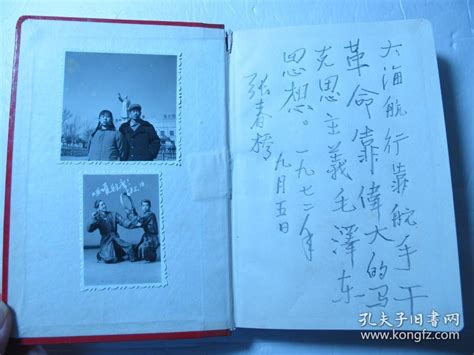 大海航行靠航手干
革命靠偉大的马
克思主義毛澤東
思想。一九七二年
九月五日
张春橋
孔夫子旧书网
www.kongfz.com